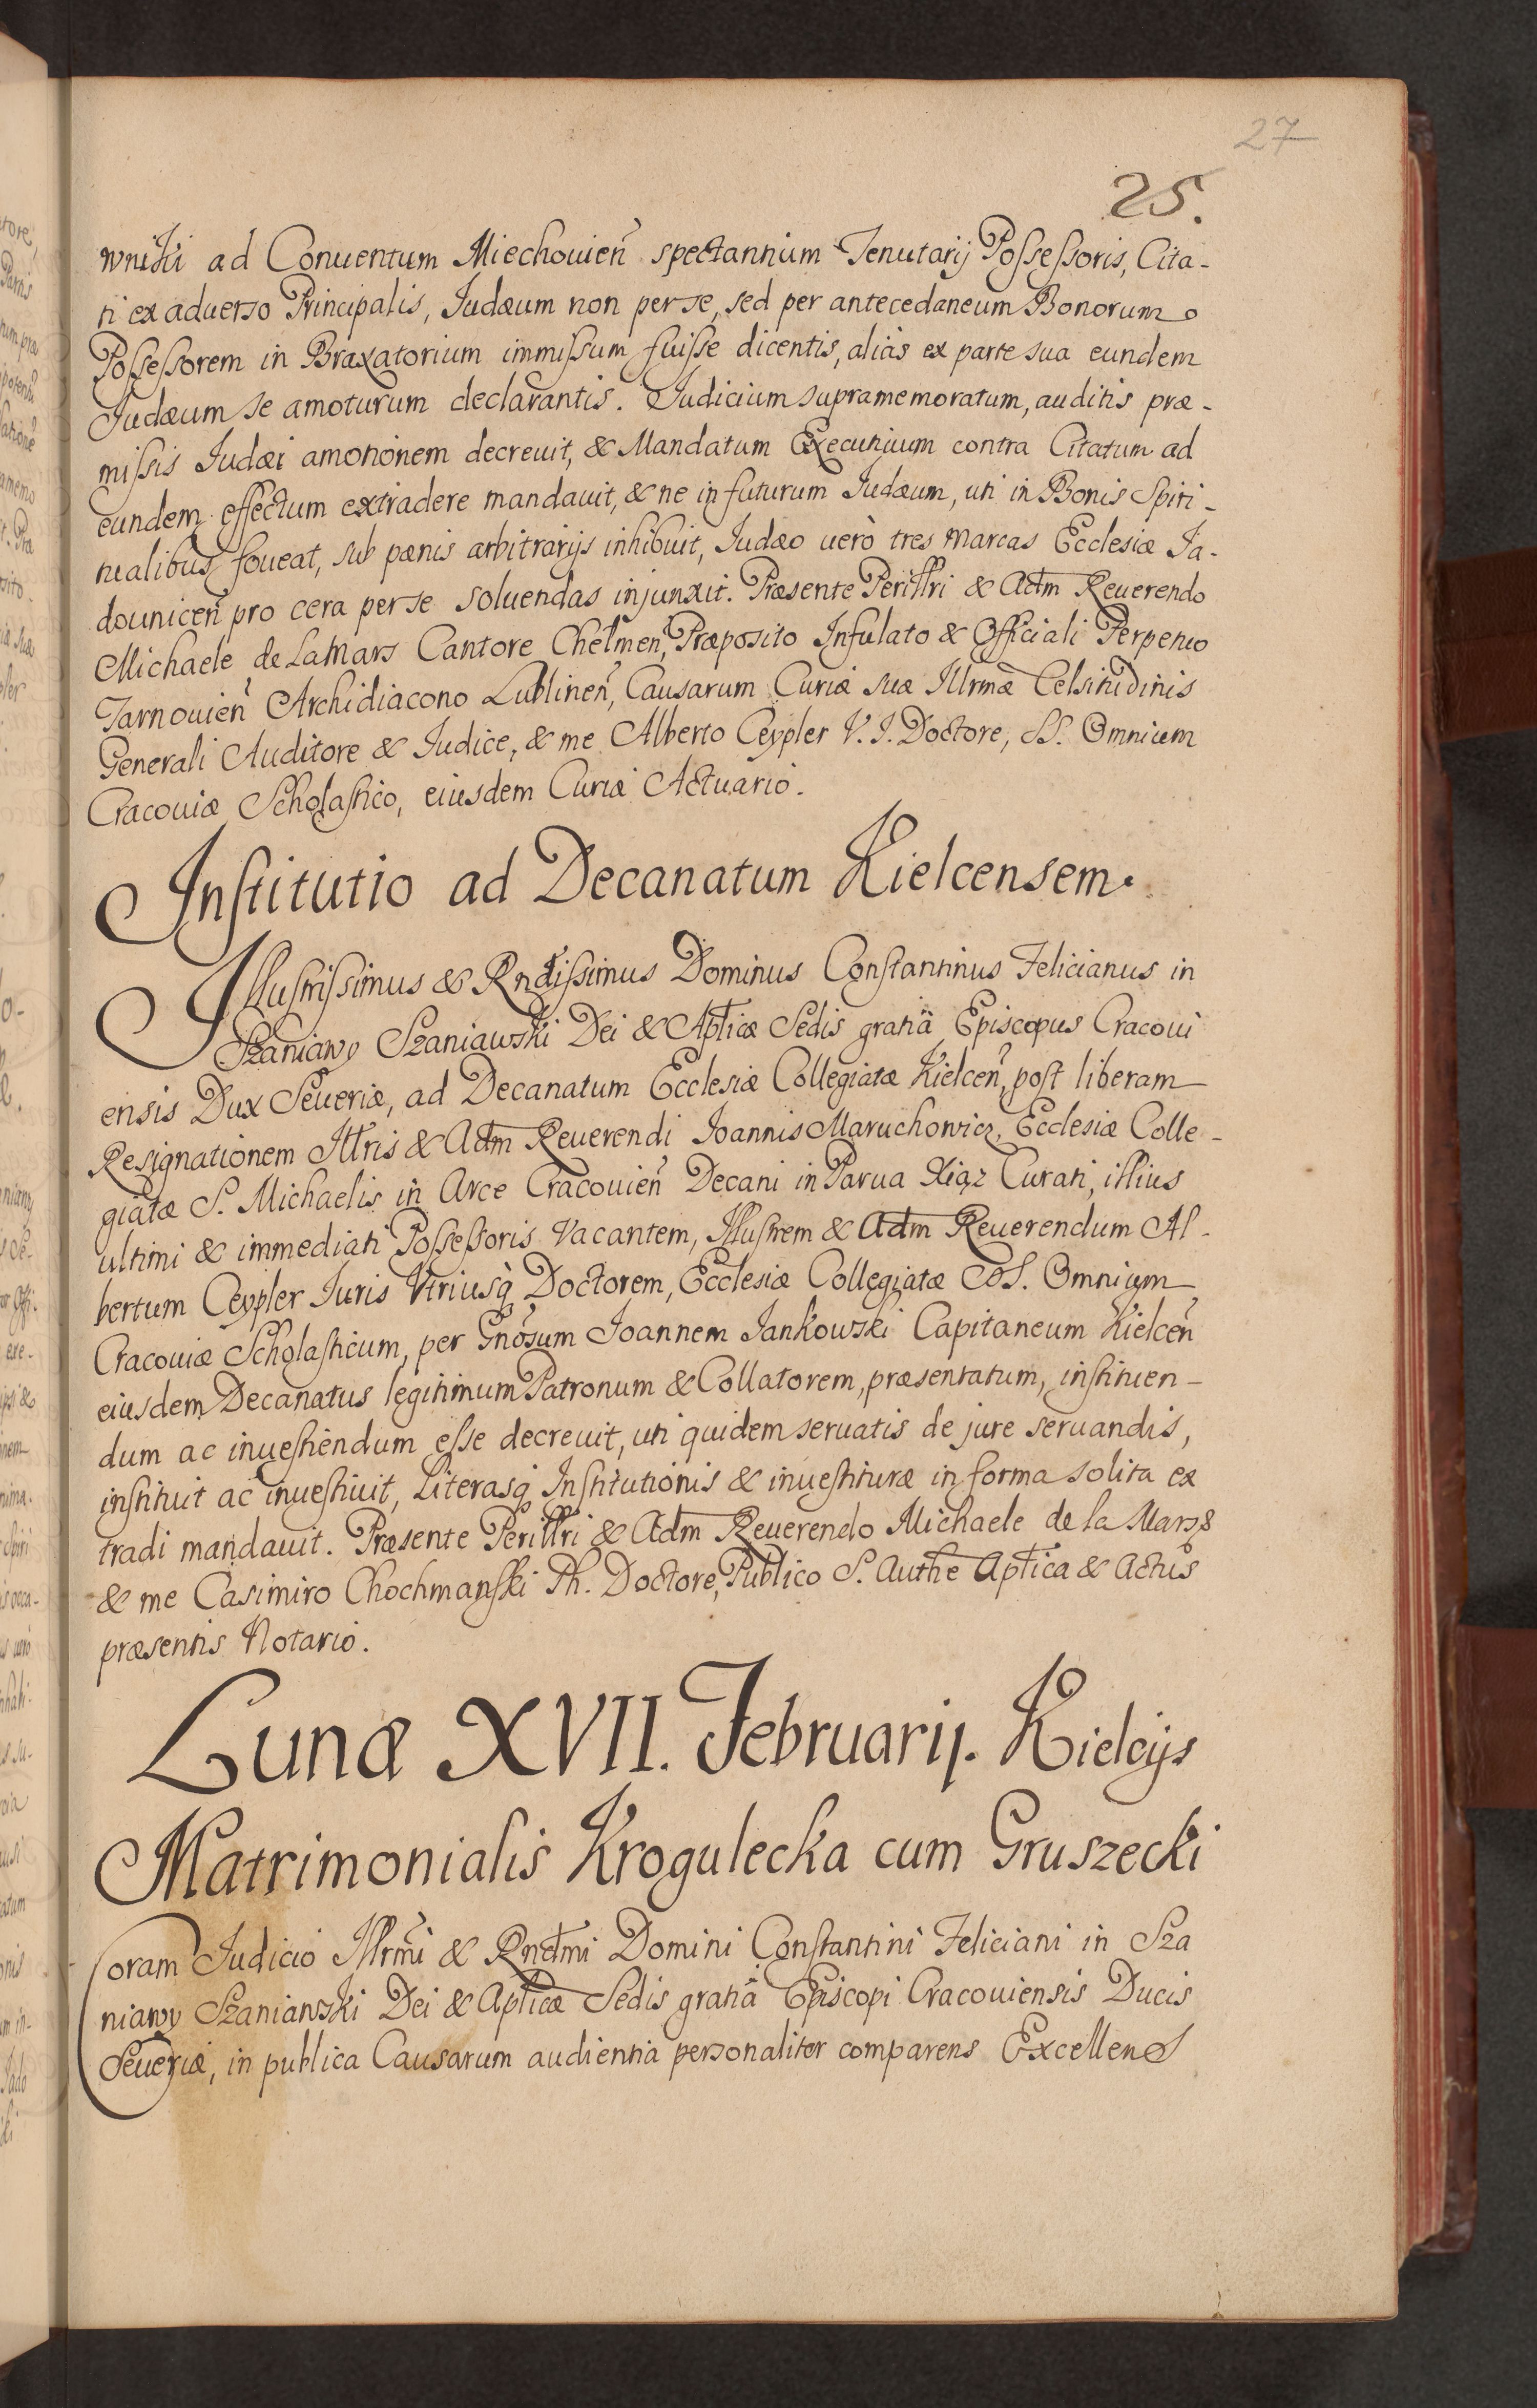 27
25.
wniki ad Conuentum Miechouien̄ spectantium Tenutarij Possessoris, Cita-
ti ex aduerso Principalis, Judæum non per se, sed per antecedaneum Bonorum
Possessorem in Braxatorium immissum fuisse dicentis, aliàs ex parte sua eundem
Judæum se amoturum declarantis. Judicium supramemoratum, auditis præ-
missis Judæi amotionem decreuit, & Mandatum Executiuum contra Citatum ad
eundem effectum extradere mandauit, & ne in futurum Judæum, uti in Bonis Spiri-
tualibus foueat, sub pænis arbitrarijs inhibuit, Judæo uerò tres Marcas Ecclesiæ Ja-
dounicen̄ pro cera per se soluendas injunxit. Præsente Perillri & Adm Reuerendo
Michaele de La Mars Cantore Chelmen̄, Præposito Infulato & Officiali Perpetuo
Tarnouien̄ Archidiacono Lublinen̄, Causarum Curiæ suæ Illrmæ Celsitudinis
Generali Auditore & Judice, & me Alberto Ceypler V. J. Doctore, SS. Omnium
Cracouiæ Scholastico, eiusdem Curiæ Actuario.
Institutio ad Decanatum Kielcensem.
Illustrissimus & Rndissimus Dominus Constantinus Felicianus in
Szaniawy Szaniawski Dei & Aplicæ Sedis gratiâ Episcopus Cracoui
ensis Dux Seueriæ, ad Decanatum Ecclesiæ Collegiatæ Kielcen̄, post liberam
Resignationem Illris & Adm Reuerendi Joannis Maruchowicz, Ecclesiæ Colle-
giatæ S. Michaelis in Arce Cracouien̄ Decani in Parua Xiąz Curati, illius
ultimi & immediati Possessoris Vacantem, Illustrem & Adm Reuerendum Al-
bertum Ceypler Juris Vtriusq̀ Doctorem, Ecclesiæ Collegiatæ SS. Omnium
Cracouiæ Scholasticum, per Gnosum Joannem Jankowski Capitaneum Kielcen̄
eiusdem Decanatus legitimum Patronum & Collatorem, præsentatum, instituen-
dum ac inuestiendum esse decreuit, uti quidem seruatis de jure seruandis,
instituit ac inuestiuit, Literasq̀ Institutionis & inuestituræ in forma solita ex
tradi mandauit. Præsente Perillri & Adm Reuerendo Michaele de la Mars
& me Casimiro Chochmanski Ph. Doctore, Publico S. Authe Aplica & Actus
præsentis Notario.
Lunæ XVII. Februarij. Kielcijs
Matrimonialis Krogulecka cum Gruszecki
Coram Judicio Illrmi & Rndmi Domini Constantini Feliciani in Sza
niawy Szaniawski Dei & Aplicæ Sedis gratiâ Episcopi Cracouiensis Ducis
Seueriæ, in publica Causarum audientia personaliter comparens Excellens